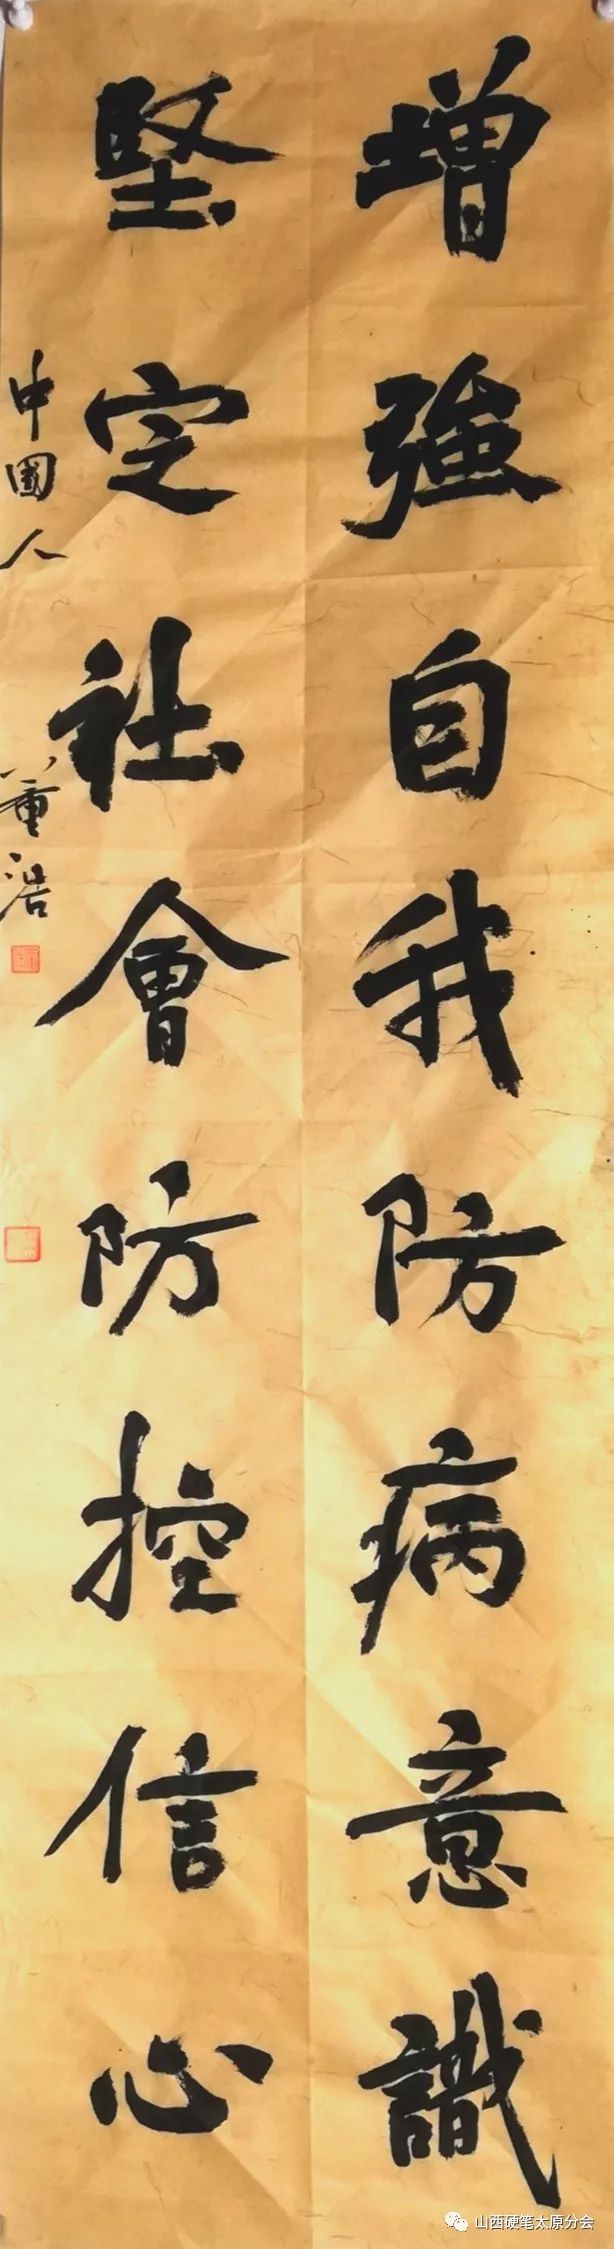 增強自我防病意識
堅定社會防控信心
中國人
董浩
山西硬笔太原分会